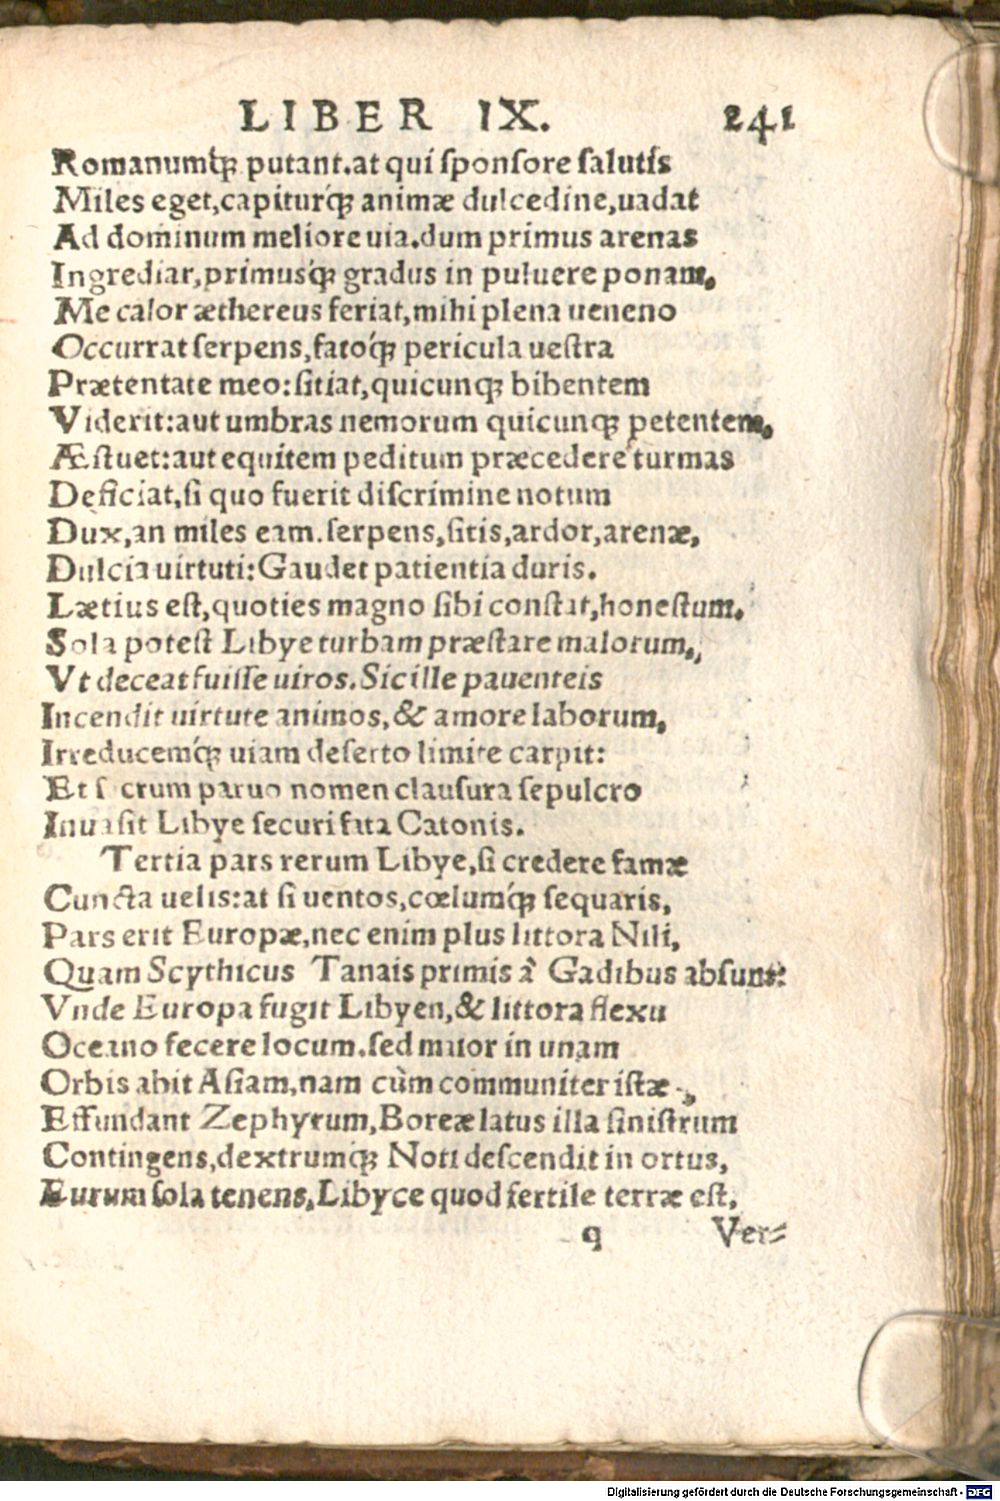 LIBER IX. 241
Romanumq́ꝫ putant.at qui ſponſore ſalutis
Miles eget,capiturq́ꝫ animæ dulcedine,uadat
Ad dominum meliore uia.dum primus arenas
Ingrediar,primusq́ꝫ gradus in puluere ponam,
Me calor æthereus feriat,mihi plena ueneno
Occurrat ſerpens,fatoq́ꝫ pericula ueſtra
Prætentate meo:ſitiat,quicunqꝫ bibentem
Viderit:aut umbras nemorum quicunqꝫ petentem,
Æſtuet:aut equitem peditum præcedere turmas
Deficiat,ſi quo fuerit diſcrimine notum
Dux,an miles eam.ſerpens,ſitis,ardor,arenæ,
Dulcia uirtuti:Gaudet patientia duris.
Lætius eſt,quoties magno ſibi conſtat,honeſtum.
Sola poteſt Libye turbam præſtare malorum,
Vt deceat fuiſſe uiros.Sic ille pauenteis
Incendit uirtute animos,& amore laborum,
Irreducemq́ꝫ uiam deſerto limite carpit:
Et ſacrum paruo nomen clauſura ſepulcro
Inuaſit Libye ſecuri fata Catonis.
Tertia pars rerum Libye,ſi credere famæ
Cuncta uelis:at ſi uentos,cœlumq́ꝫ ſequaris,
Pars erit Europæ,nec enim plus littora Nili,
Quam Scythicus Tanais primis à Gadibus abſunt:
Vnde Europa fugit Libyen,& littora flexu
Oceano fecere locum.ſed maior in unam
Orbis abit Aſiam,nam cùm communiter iſtæ
Effundant Zephyrum,Boreæ latus illa ſiniſtrum
Contingens,dextrumq́ꝫ Noti deſcendit in ortus,
Eurum ſola tenens,Libycæ quod fertile terræ eſt,
q Ver-
Digitalisierung gefördert durch die Deutsche Forschungsgemeinschaft - DFG